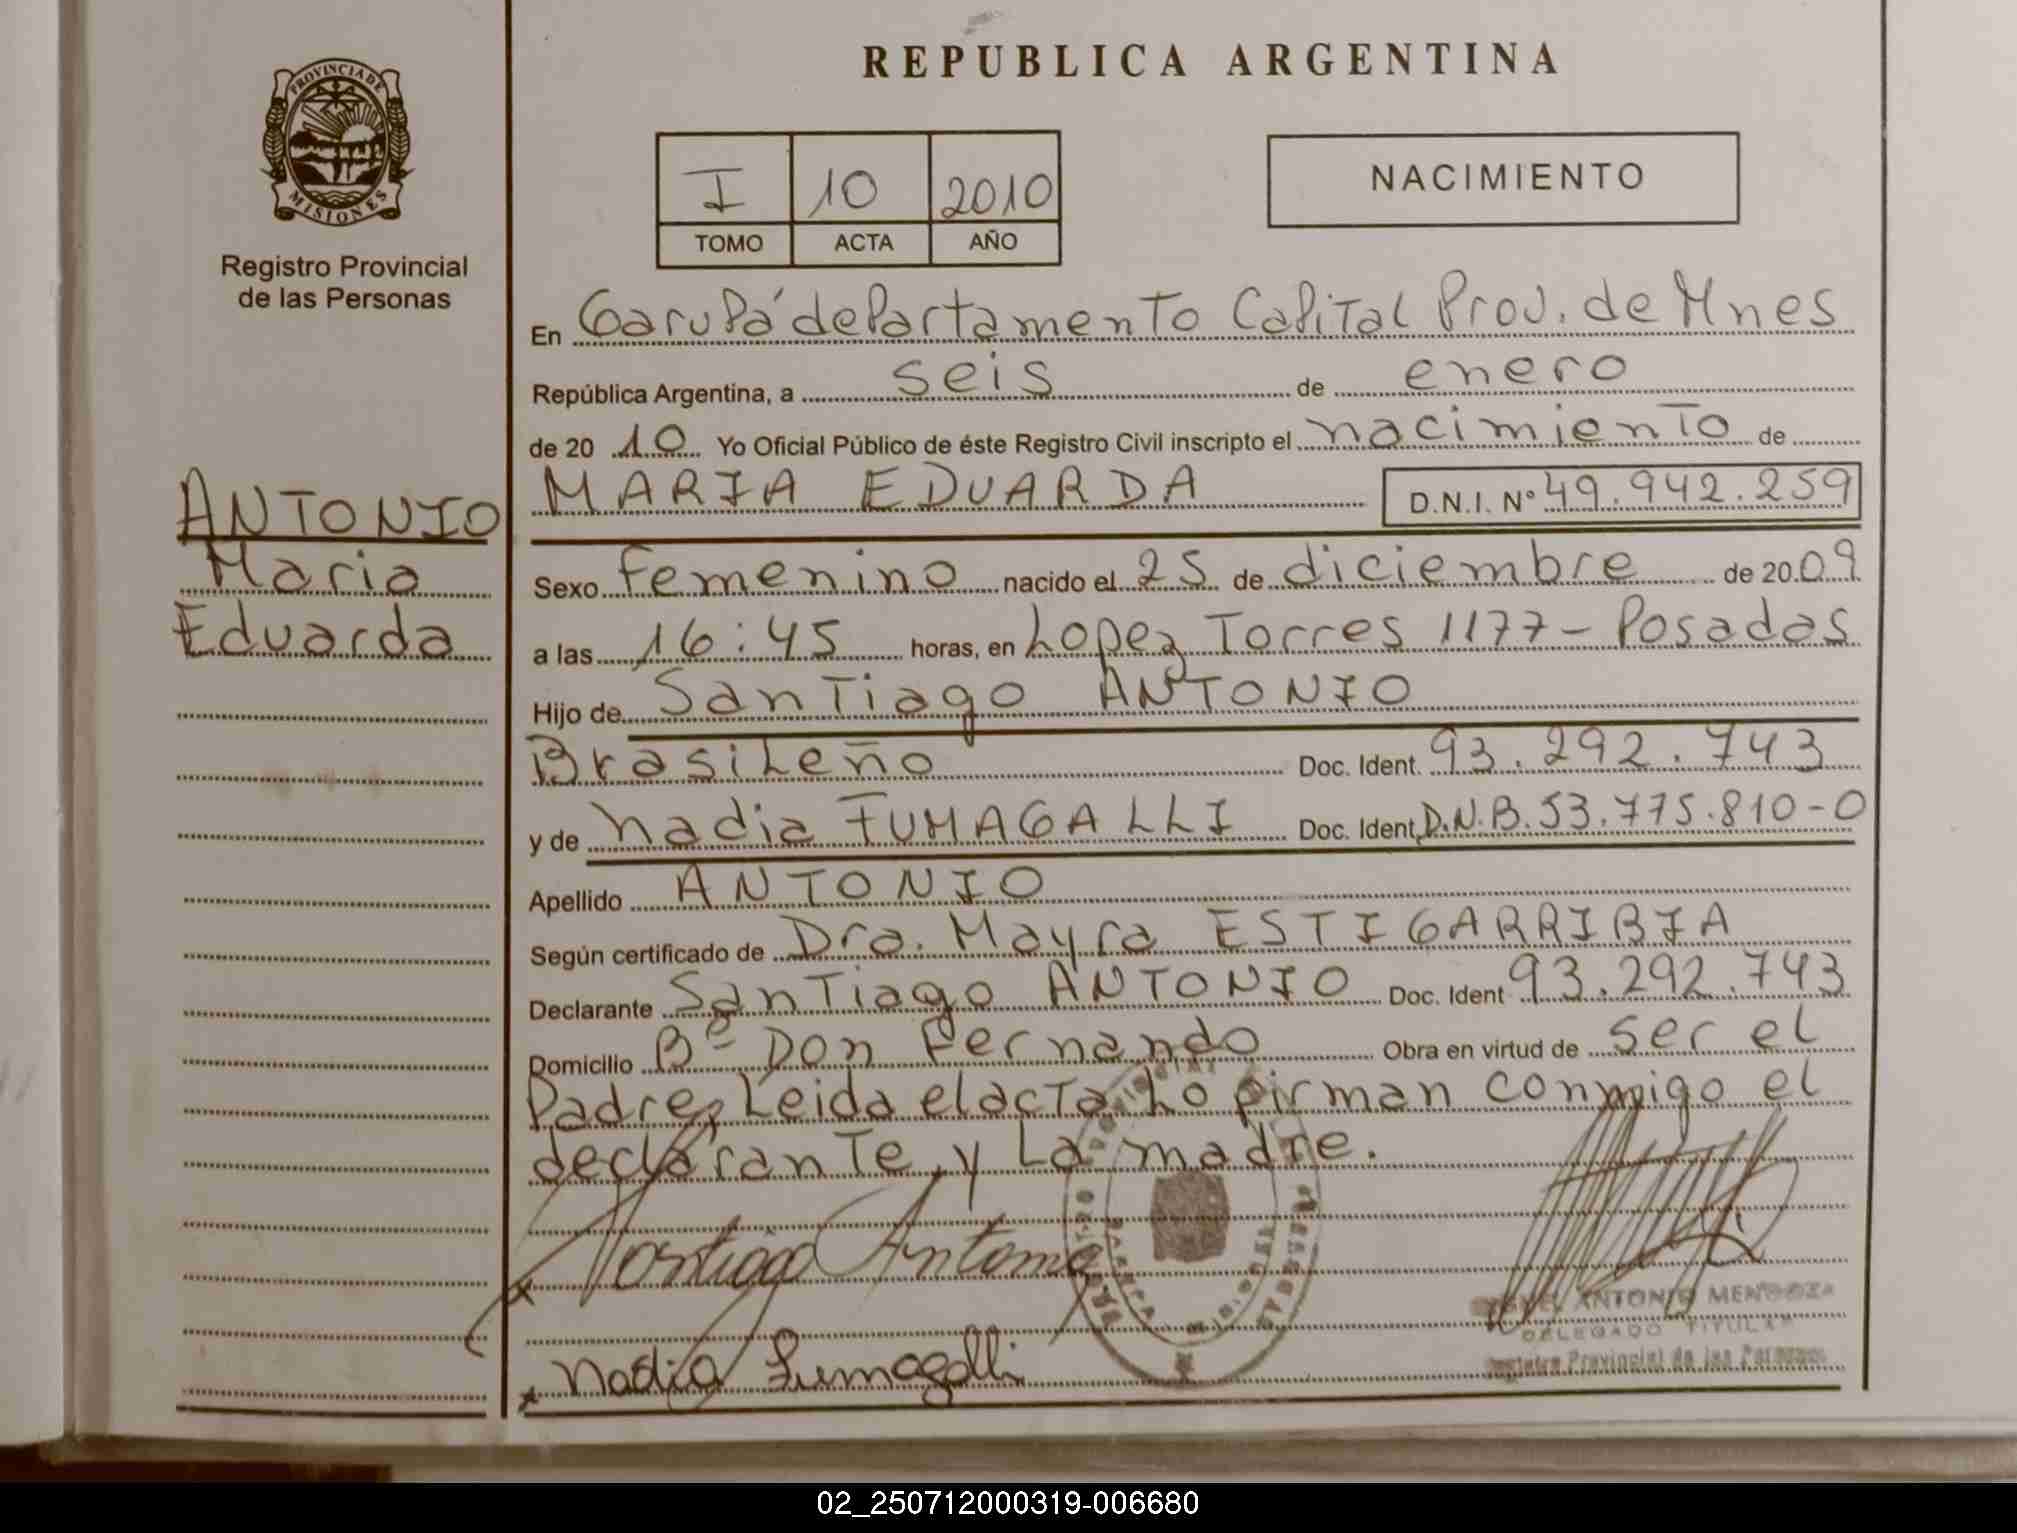 PROVINCIA DE
MISIONES
Registro Provincial
de las Personas
ANTONIO
Maria
Eduarda
REPUBLICA ARGENTINA
I 10 2010
TOMO ACTA AÑO
NACIMIENTO
En Garupá departamento Capital Prov. de Mnes
República Argentina, a seis de enero
de 20 10 Yo Oficial Público de éste Registro Civil inscripto el nacimiento de
MARIA EDUARDA D.N.I. Nº 49.942.259
Sexo femenino nacido el 25 de diciembre de 20 09
a las 16:45 horas, en Lopez Torres 1177 - Posadas
Hijo de Santiago ANTONIO
Brasileño Doc. Ident. 93.292.743
y de nadia FUMAGALLI Doc. Ident. D.N.B. 53.775.810-0
Apellido ANTONIO
Según certificado de Dra. Mayra ESTIGARRIBIA
Declarante Santiago ANTONIO Doc. Ident 93.292.743
Domicilio Bº Don Fernando Obra en virtud de ser el
Padre, Leida el acta Lo firman conmigo el
declarante y La madre.
Santiago Antonio
Nadia Fumagalli
ANTONIO MENDOZA
DELEGADO TITULAR
Registro Provincial de las Personas
02_250712000319-006680